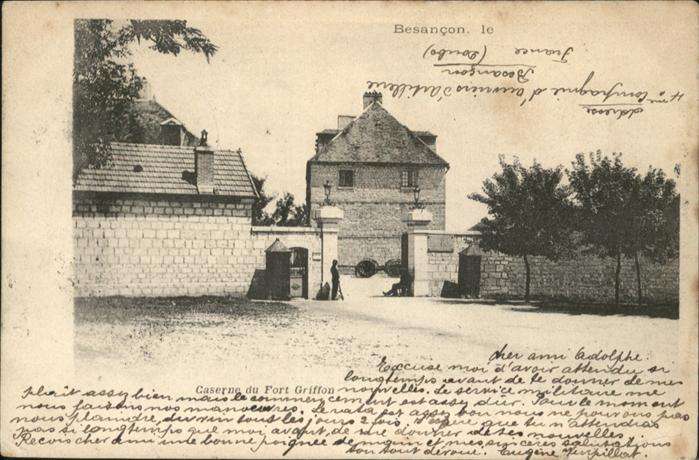 Besançon, le
adresse
4me Compagnie d'ouvriers d'artillerie
Besançon
(Doubs)
France
Caserne du Fort Griffon
cher ami Adolphe.
Excuse moi d'avoir attendu si
longtemps avant de te donner de mes
nouvelles. Le service militaire me
plait assy bien mais le commencement est assy dur. Pour le moment
nous faisons nos manoeuvres. Le rata est assy bon nous ne pouvons pas
nous plaindre, du vin tous les jours 2 fois. J'espère que tu n'attendras
pas si longtemps que moi avant de me donner de tes nouvelles.
Reçois cher ami une bonne poignée de main et mes sincères salutations
ton tout dévoué. Eugène